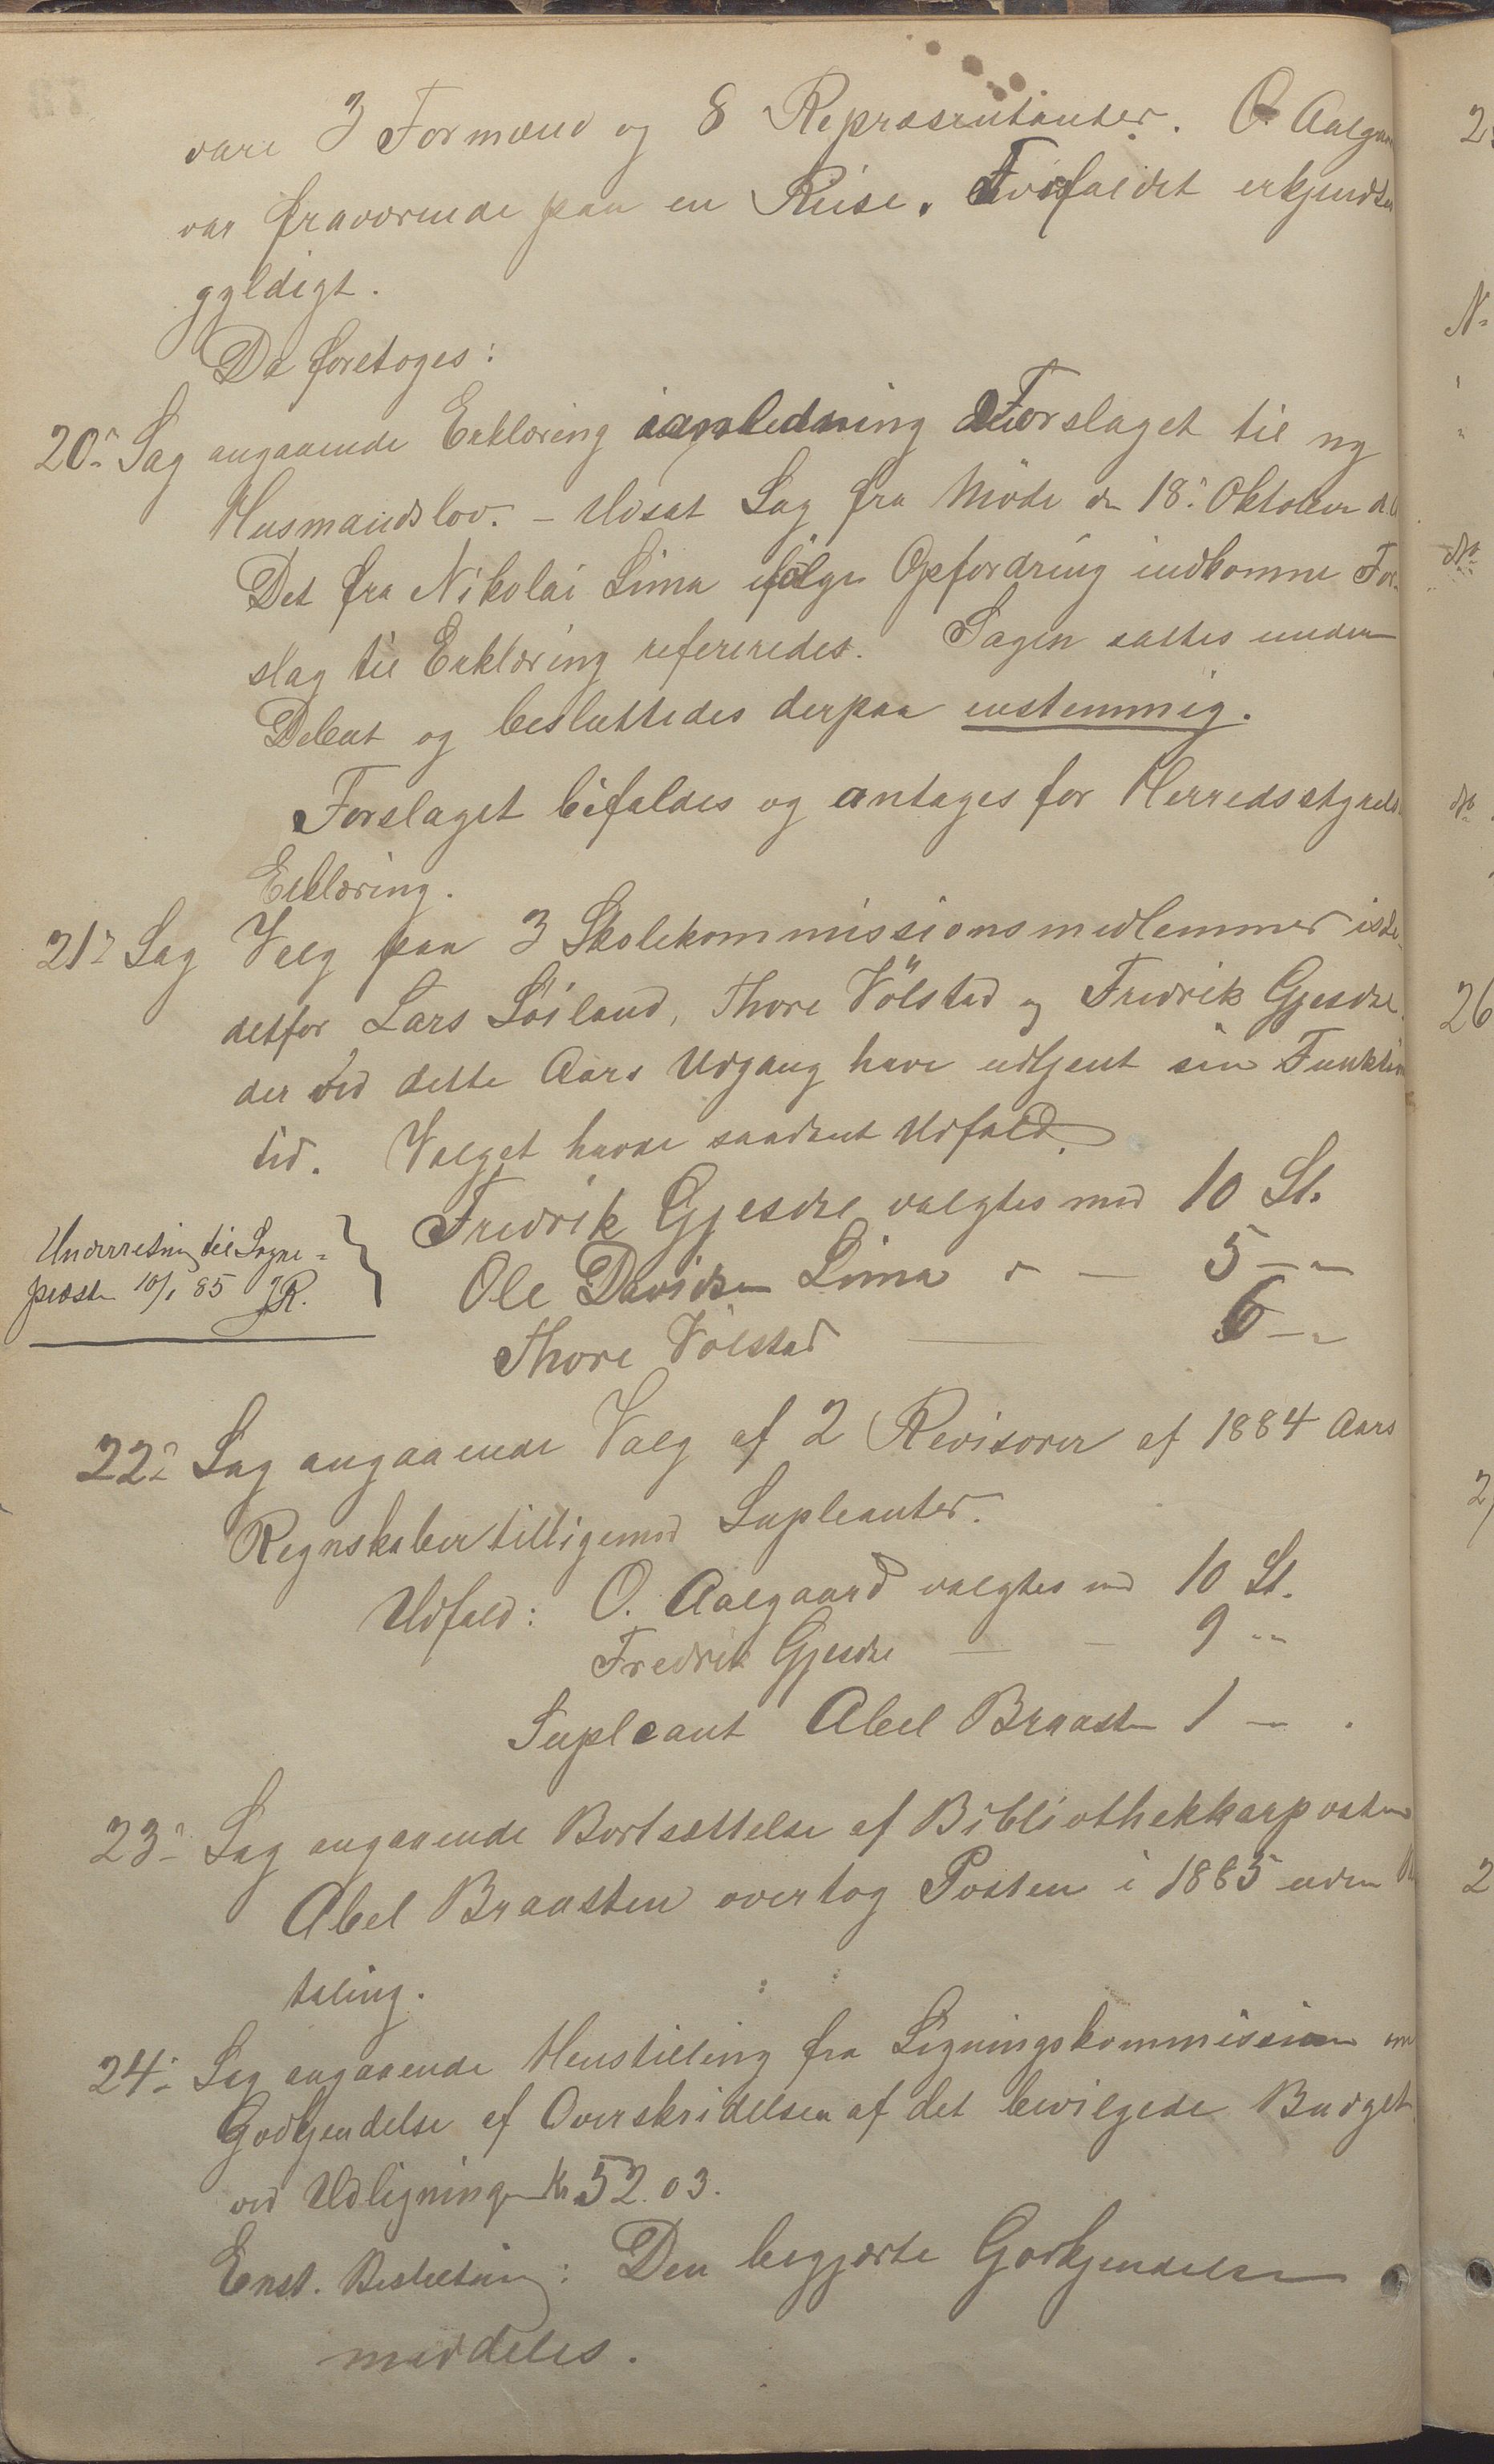 vare 3 Formænd og 8 Repræsentanter. O. Aalgaa
var fraværende paa en Reise. Forfaldet erkjendtes
gyldigt.
Da foretoges:
20de Sag angaaende Erklæring ianledning Forslaget til ny
Husmandslov. – Udsat Sag fra Møde dn 18de Oktober d.A.
Det fra Nikolai Lima ifølge Opfordring indkomne For-
slag til Erklæring refereredes. Sagen sattes under
Debat og besluttedes derpaa enstemmig.
Forslaget bifaldes og antages for Herredsstyrelsens
Erklæring.
21de Sag Valg paa 3 Skolekommissionsmedlemmer iste-
detfor Lars Söiland, Thore Völstad og Fredrik Gjesdal
der ved dette Aars Udgang have udtjent sin Funktions
tid. Valget havde saadant Udfald.
Fredrik Gjesdal valgtes med 10 St.
Ole Davidsen Lima " — 5 – "
Thore Völstad — 6 – "
Underretning til Sogne-
præsten 10/1 85 JR.
22de Sag angaaende Valg af 2 Revisorer af 1884 Aars
Regnskaber tilligemed Supleanter.
Udfald: O. Aalgaard valgtes med 10 St.
Fredrik Gjesdal — – 9 "
Supleant Abel Braasten 1 — .
23de Sag angaaende Bortsættelse af Bibliothekkarposten
Abel Braasten overtog Posten i 1885 uden Be
taling.
24de Sag angaaende Henstilling fra Ligningskommission om
Godkjendelse af Overskridelsen af det bevilgede Budget
ved Udligningen Kr 52.03.
Enst. Beslutning: Den begjærte Godkjendelse
meddeles.